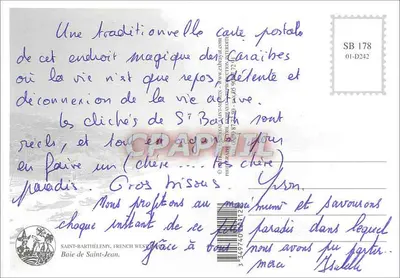 Une traditionnelle carte postale
de cet endroit magique des Caraïbes
où la vie n'est que repos, détente et
déconnexion de la vie active.
Les clichés de St Barth sont
réels, et tout en pour
en faire un (chère ... très chère)
paradis. Gros bisous. Yvon.
Nous profitons au maximum et savourons
chaque instant de ce petit paradis dans lequel
grâce à nous avons pu partir.
merci Isabelle
SB 178
01-D242
SAINT-BARTHÉLEMY, FRENCH WEST
Baie de Saint-Jean.